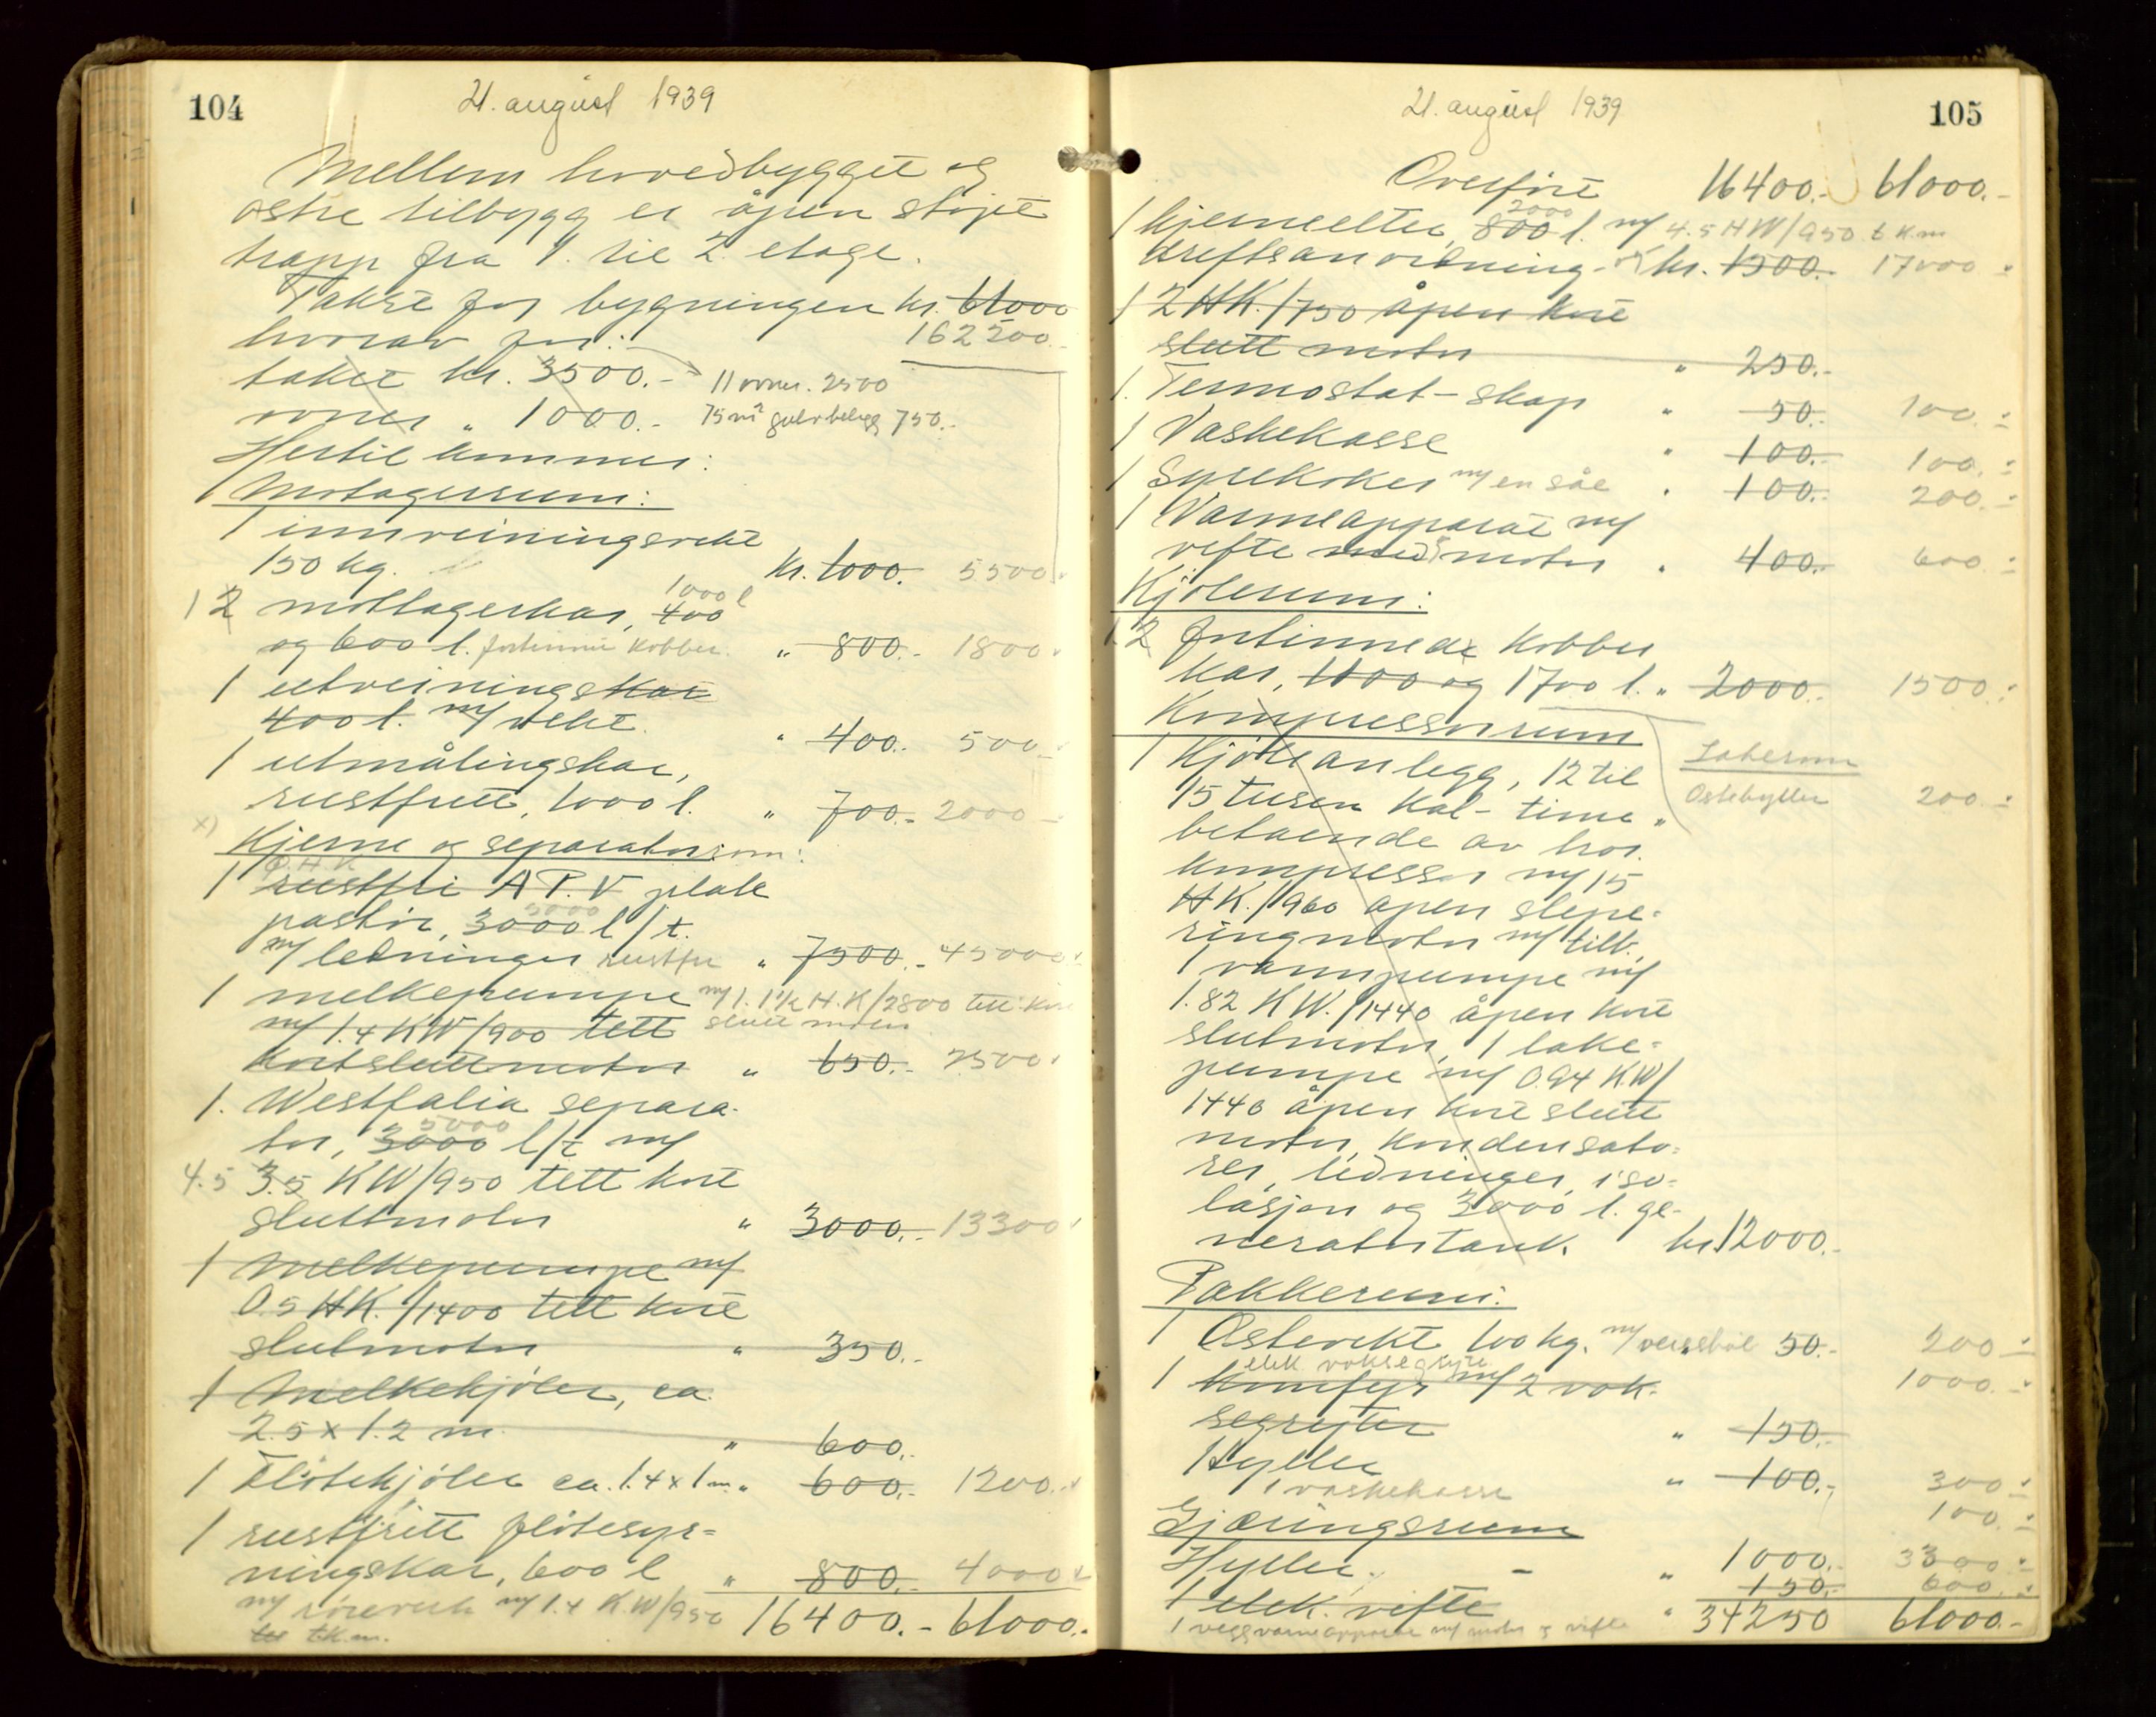 104
21. august 1939
Mellem hovedbygget og
østre tilbygg er åpen støpt
trapp fra 1. til 2. etage.
Takst for bygningen kr. 61000
hvorav for: 162500.-
taket kr. 3500.- 11 ovner. 2500
ovner " 1000.- 75 m² gulvbelegg 750.-
Hertil kommer:
Motagerrum:
1 innveiningsvekt
150 kg. kr. 1000. 5500
1 2 mottagerkar, 400 1000 l
og 600 l. fortinnet kobber. " 800.- 1800
1 utveiningskar
400 l. m/ vekt. " 400.- 500
1 utmålingskar,
rustfritt, 1000 l. " 700.- 2000
x) Kjerne og separatorrom:
1 rustfri A.P.V plate
pastør, 3000 l/t. 5000
m/ ledninger rustfri " 7500.- 45000
1 melkepumpe m/ 1. 1½ H.K/2800 tett kort
m/ 1.4 KW/900 tett slutt motor
kortsluttmotor " 650.- 2500
1. Westfalia separa-
5000
tor, 3000 l/t m/
4.5 3.5 KW/950 tett kort
sluttmotor " 3000.- 13300
1 Melkepumpe m/
0.5 HK./1400 tett kort
slutmotor " 350.-
1 Melkekjøler, ca.
2.5 x 1.2 m. " 600.-
1 Fløtekjøler ca. 1.4 x 1 m. " 600.- 1200.-
1 rustfritt fløtesyr=
ningskar, 600 l " 800.- 4000
m/ røreverk m/ 1.4 K.W/950 16400.- 61000.-
t.k.m.
105
21. august 1939
Overført 16400.- 61000.-
2000
1 kjerneelter, 800 l. m/ 4.5 HW/950 t.k.m
driftsanordning - kr. 1500.- 17000
1 2 HK./750 åpen kort
slutt motor " 250.-
1. Termostat-skap " 50.- 100.-
1 Vaskekasse " 100.- 100.-
1 Syrekoker m/ en såe " 100.- 200.-
1 Varmeapparat m/
vifte med motor " 400.- 600.-
Kjølerum:
1 2 fortinnede kobber
kar, 1100 og 1700 l. " 2000.- 1500.-
Kompressorrum
1 Kjøleanlegg, 12 til Lakerom
15 tusen Kal-time " Ostehyller 200.-
bestaende av hor.
kompressor m/ 15
HK./960 åpen slepe-
ringmotor m/ tilb.,
1 vannpumpe m/
1.82 KW./1440 åpen kort
slutmotor, 1 lake-
pumpe m/ 0.94 K.W/
1440 åpen kort slutt
motor, kondensato-
rer, ledninger, iso-
lasjon og 3000 l. ge-
neratortank. kr. 12000.-
Pakkerum:
1 Ostevekt 100 kg. m/ 50.- 200.-
elek. voksegryte
1 komfyr m/ 2 vok- 1000.-
segryter " 150.-
Hyller " 100.- 300.-
1 vaskekasse 100.-
Gjæringsrum
Hyller. " 1000.- 3300.-
1 elek. vifte " 150.- 600.-
1 veggvarmeapparat m/ motor og vifte 34250 61000.-